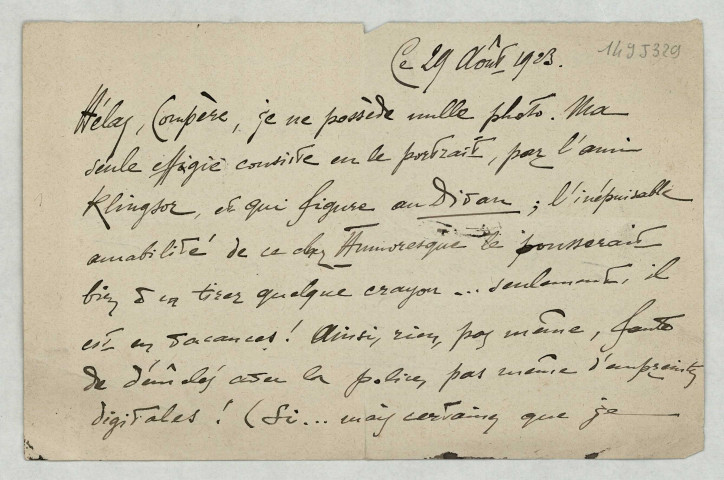 Ce 29 Août 1923.
1495329
Hélas, Compère, je ne possède nulle photo. Ma
seule effigie consiste en le portrait, par l'ami
Klingsor, et qui figure au Divan ; l'inépuisable
amabilité de ce cher Humoresque le pousserait
bien à en tirer quelque crayon ... seulement, il
est en vacances ! Ainsi, rien, pas même, faute
de démêlés avec la police, pas même d'empreintes
digitales ! (Si ... mais certaines que je